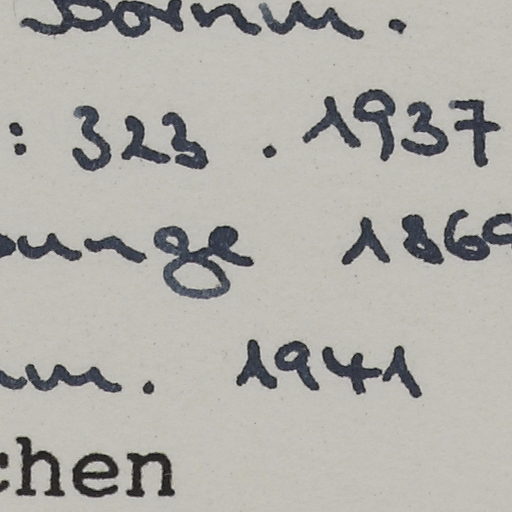 Bornm.
: 323 . 1937
unge 1860
mm. 1941
chen